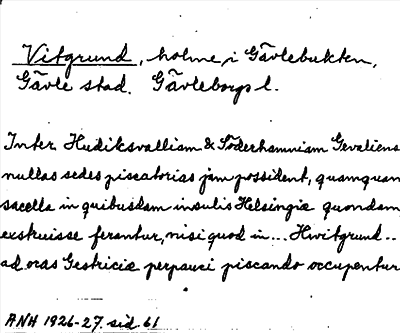 Vitgrund, holme i Gävlebukten,
Gävle stad. Gävleborgs l.
Inter Hudiksvalliam & Söderhamniam Gevaliens
nullas sedes piscatorias jam possident, quamquam
sacella in quibusdam insulis Helsingiæ quondam
exstruisse ferantur, nisi quod in... Hwitgrund..
ad oras Gestriciæ perpauci piscando occupentur
ANH 1926-27. sid. 61